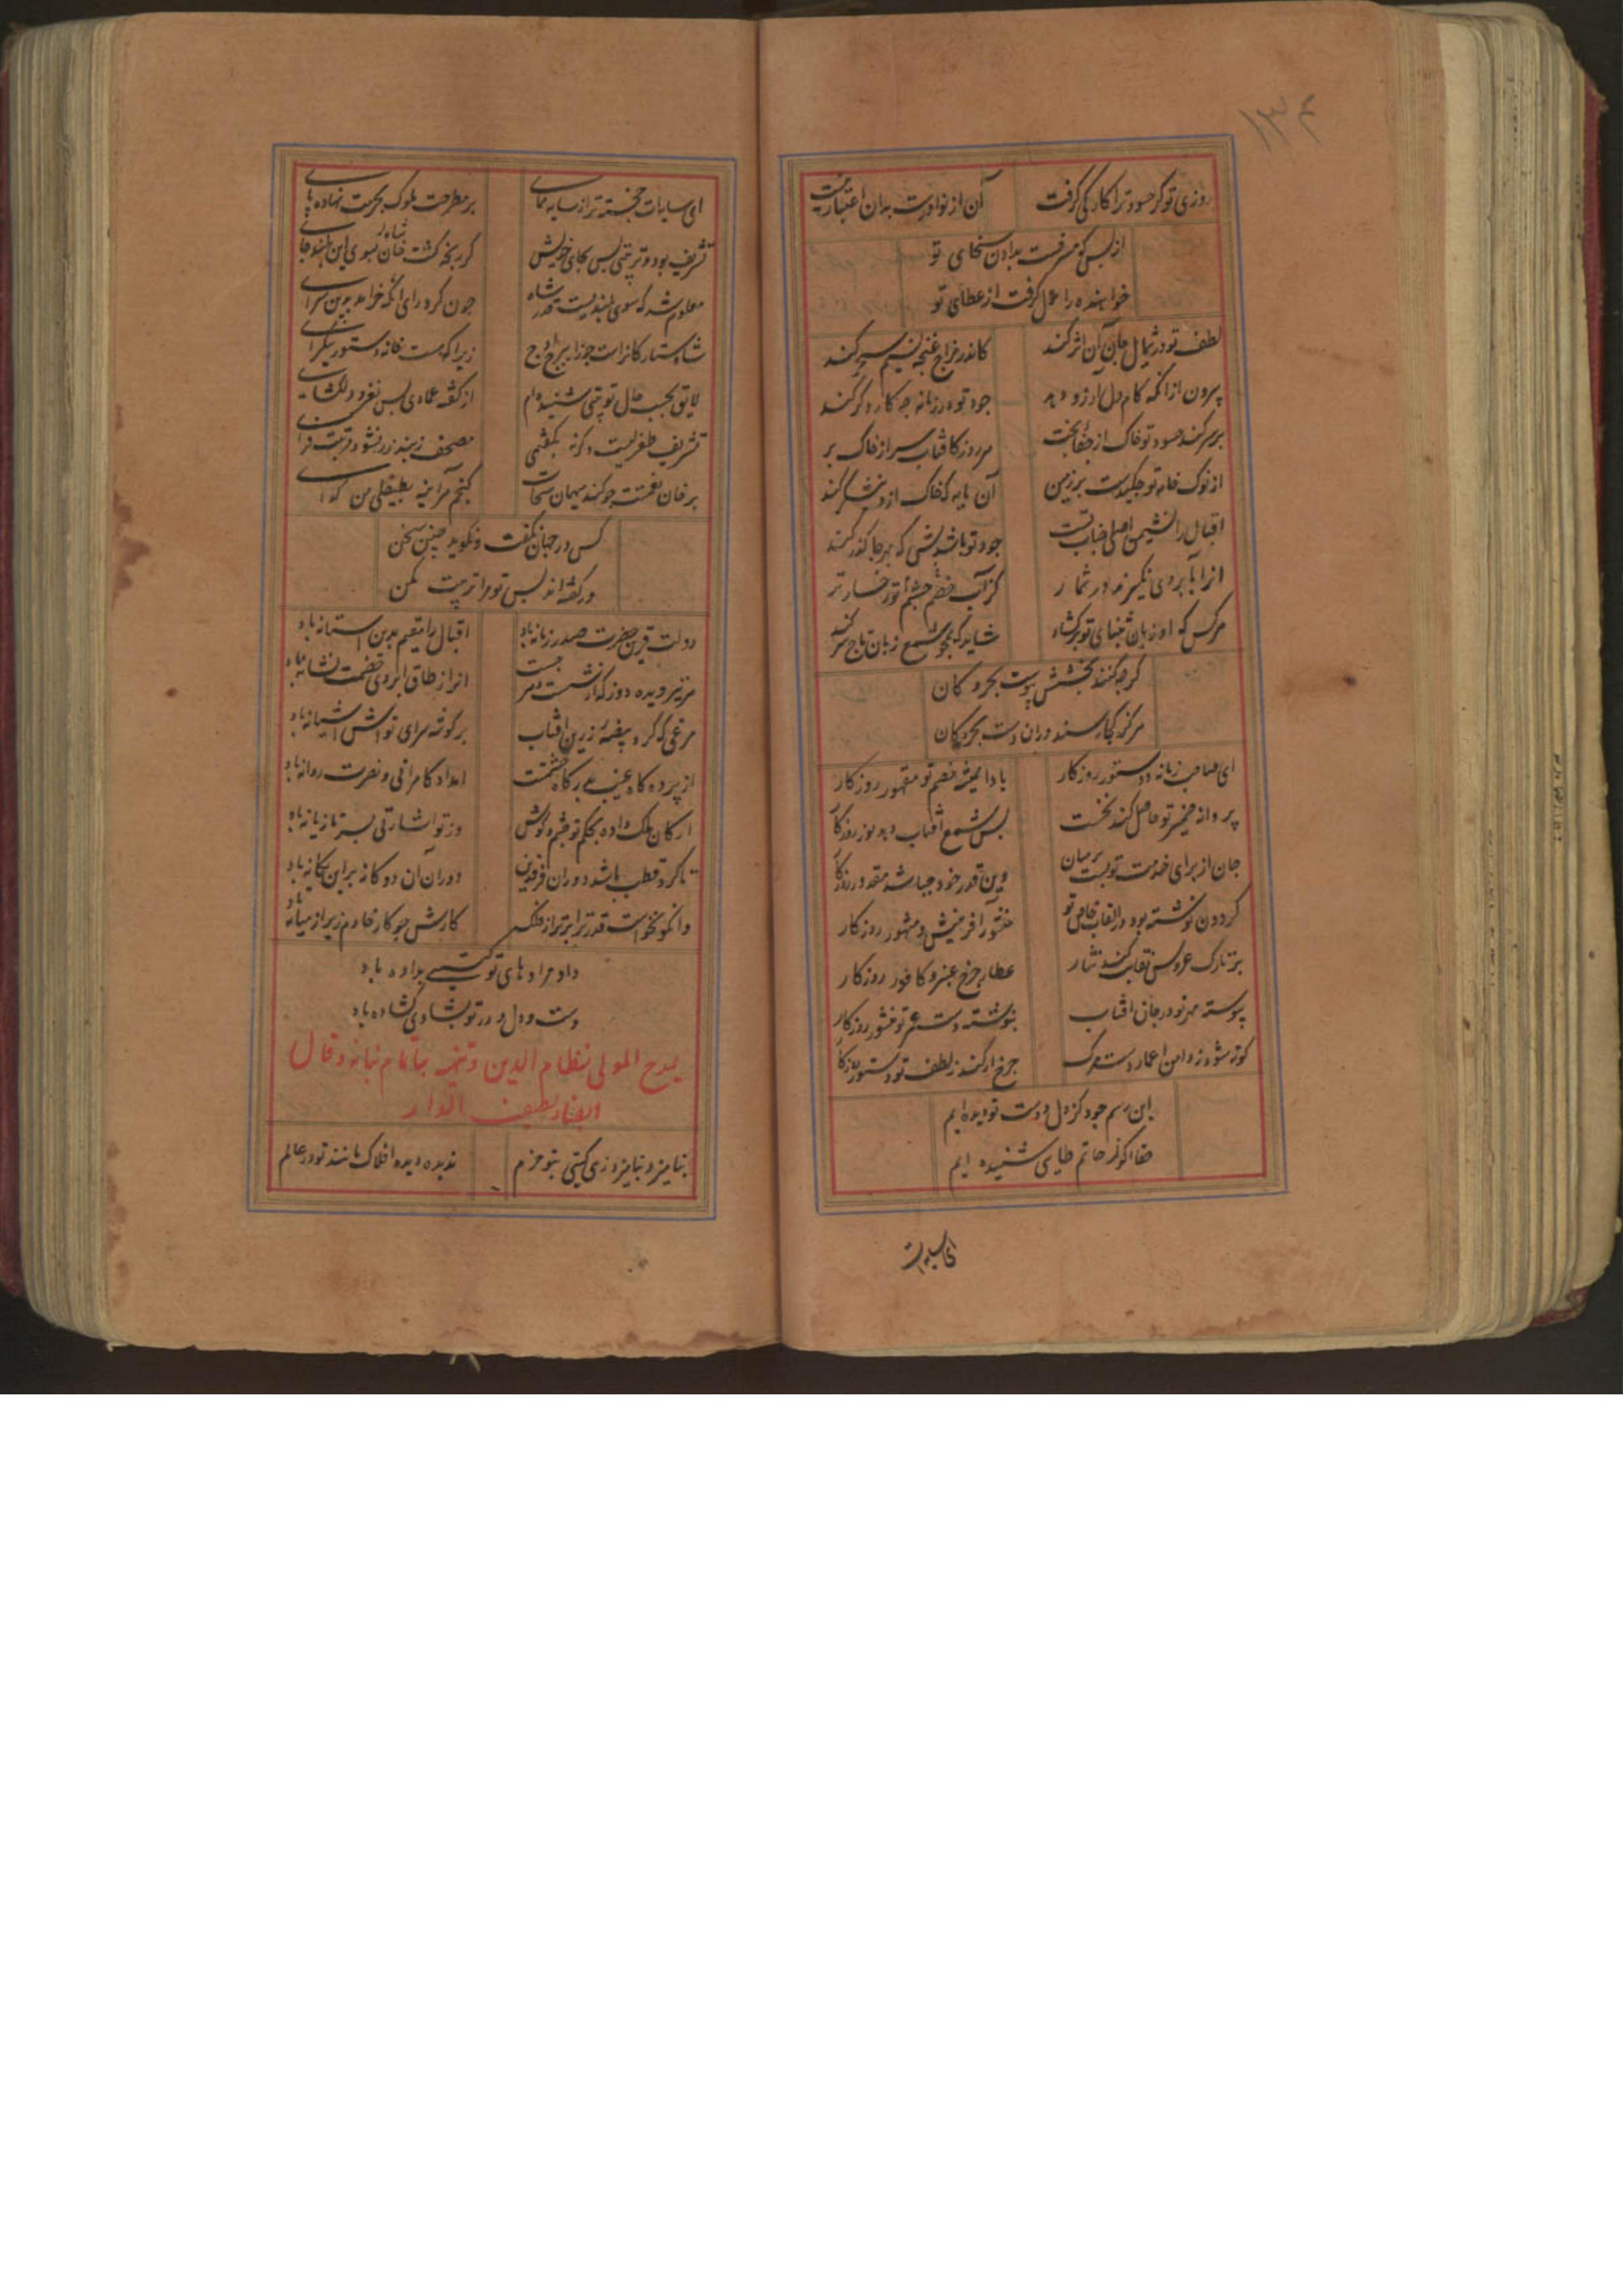 ۱۳۴
روزی تو کر حسود ترا کار کی گرفت آن از نوادرست بدان اعتبار نیست
از بس که مسرفست بدادن سخای تو
خواهنده را ملال گرفت از عطای تو
لطف تو در شمال جان آن اثر کند کاندر مزاج غنچه نسیم سحر کند
بیرون از انکه کام دل ارزو دهد جود تو در زمانه چه کار دکر کند
بر سر کند حسود تو خاک از جفا بخت هر روز کافتاب سر از خاک بر
از نوک خامه تو چکیدست بر زمین آن مایه که خاک ازو نیشکر کند
اقبال را نشیمن اصلی جناب تست جود تو باشدش که بهرجا گذر کند
انرا بابروی نکیرند در شمار کز آب خشم تو رخساره تر
مرکس که او زبان بثنای تو برکشاد شاید که همچو شمع زبان تاج سر کند
کرچه کنند بخشش پیوست بحر و کان
مرکز کجا رسند دران دست بحر و کان
ای صاحب زمانه و دستور روزکار بادا همیشه خصم تو مقهور روزکار
پروانه ضمیر تو حاصل کند نخست پس شمع افتاب دهد نور روزکار
جان از برای خدمت تو بست بر میان وین قدر خود چه باشد مقدور روزکار
کردون نوشته بود در القاب خاص تو منشور افرینش و مشهور روزکار
بر تارک عروس نقابت کند نثار عطار چرخ عنبر و کافور روزکار
پیوسته مهر نور در جان افتاب ننوشته دست عمر تو منشور روزکار
کوته شود ز دامن اعمار دست مرک چرخ ار کند ز لطف تو دستور روزکار
این رسم جود کز دل و دست تو دیده ایم
حقا اکر ز حاتم طایی شنیده ایم
ای سایه ات
ای سایه ات خجسته تر از سایه همای بر مطرحت ملوک بحرمت نهاده پای
تشریف بود و تربیتی بس بجای خویش کر رنجه کشت خان سوی این بلند جای
معلوم شد که سوی بلندیست قدر شاه چون کرد رای انکه خرامد بدین سرای
شاه ستارکانراست جوزا برج اوج زیرا که هست خانه دستور نیکرای
لایق بحسب حال تو بیتی شنیده ام از کفته عمادی بس نغز و دلکشای
تشریف طغرلیست وکرنه بکفتمی مصحف ز بند زر نشود قربت فزای
بر خوان نعمتت چو کند میهمان سخات کنجم مراینه بطفیلی من کدای
کس در جهان نکفت و نکوید چنین سخن
ور کفته اند پس تو مرا تربیت مکن
دولت قرین حضرت صدر زمانه باد اقبال را مقیم بدین استانه باد
مر تیر دیده دوز که از شست جست انرا ز طاق ابروی خصمت نشانه باد
مرغی که کرد بیضه زرین افتاب بر کوشه سرای تواش اشیانه باد
از پرده کاه غیب بدرکاه حشمتت امداد کامرانی و نصرت روانه باد
ارکان ملک داده بحکم تو چشم و کوش وز تو اشارتی بسر تازیانه باد
تا کرد قطب باشد دوران فرقدین دوران آن دوکانه برین یکانه باد
وانکو نخواست قدر ترا برتر از فلک کارش چو کار خادم زیر از میانه باد
داد مرادهای تو کیتی بداده باد
دست و دل و در تو بشادی کشاده باد
یمدح المولی نظام الدین
بنامیزد بنامیزد زهی کیتی بتو خرم ندیده دیده افلاک مانند تو در عالم